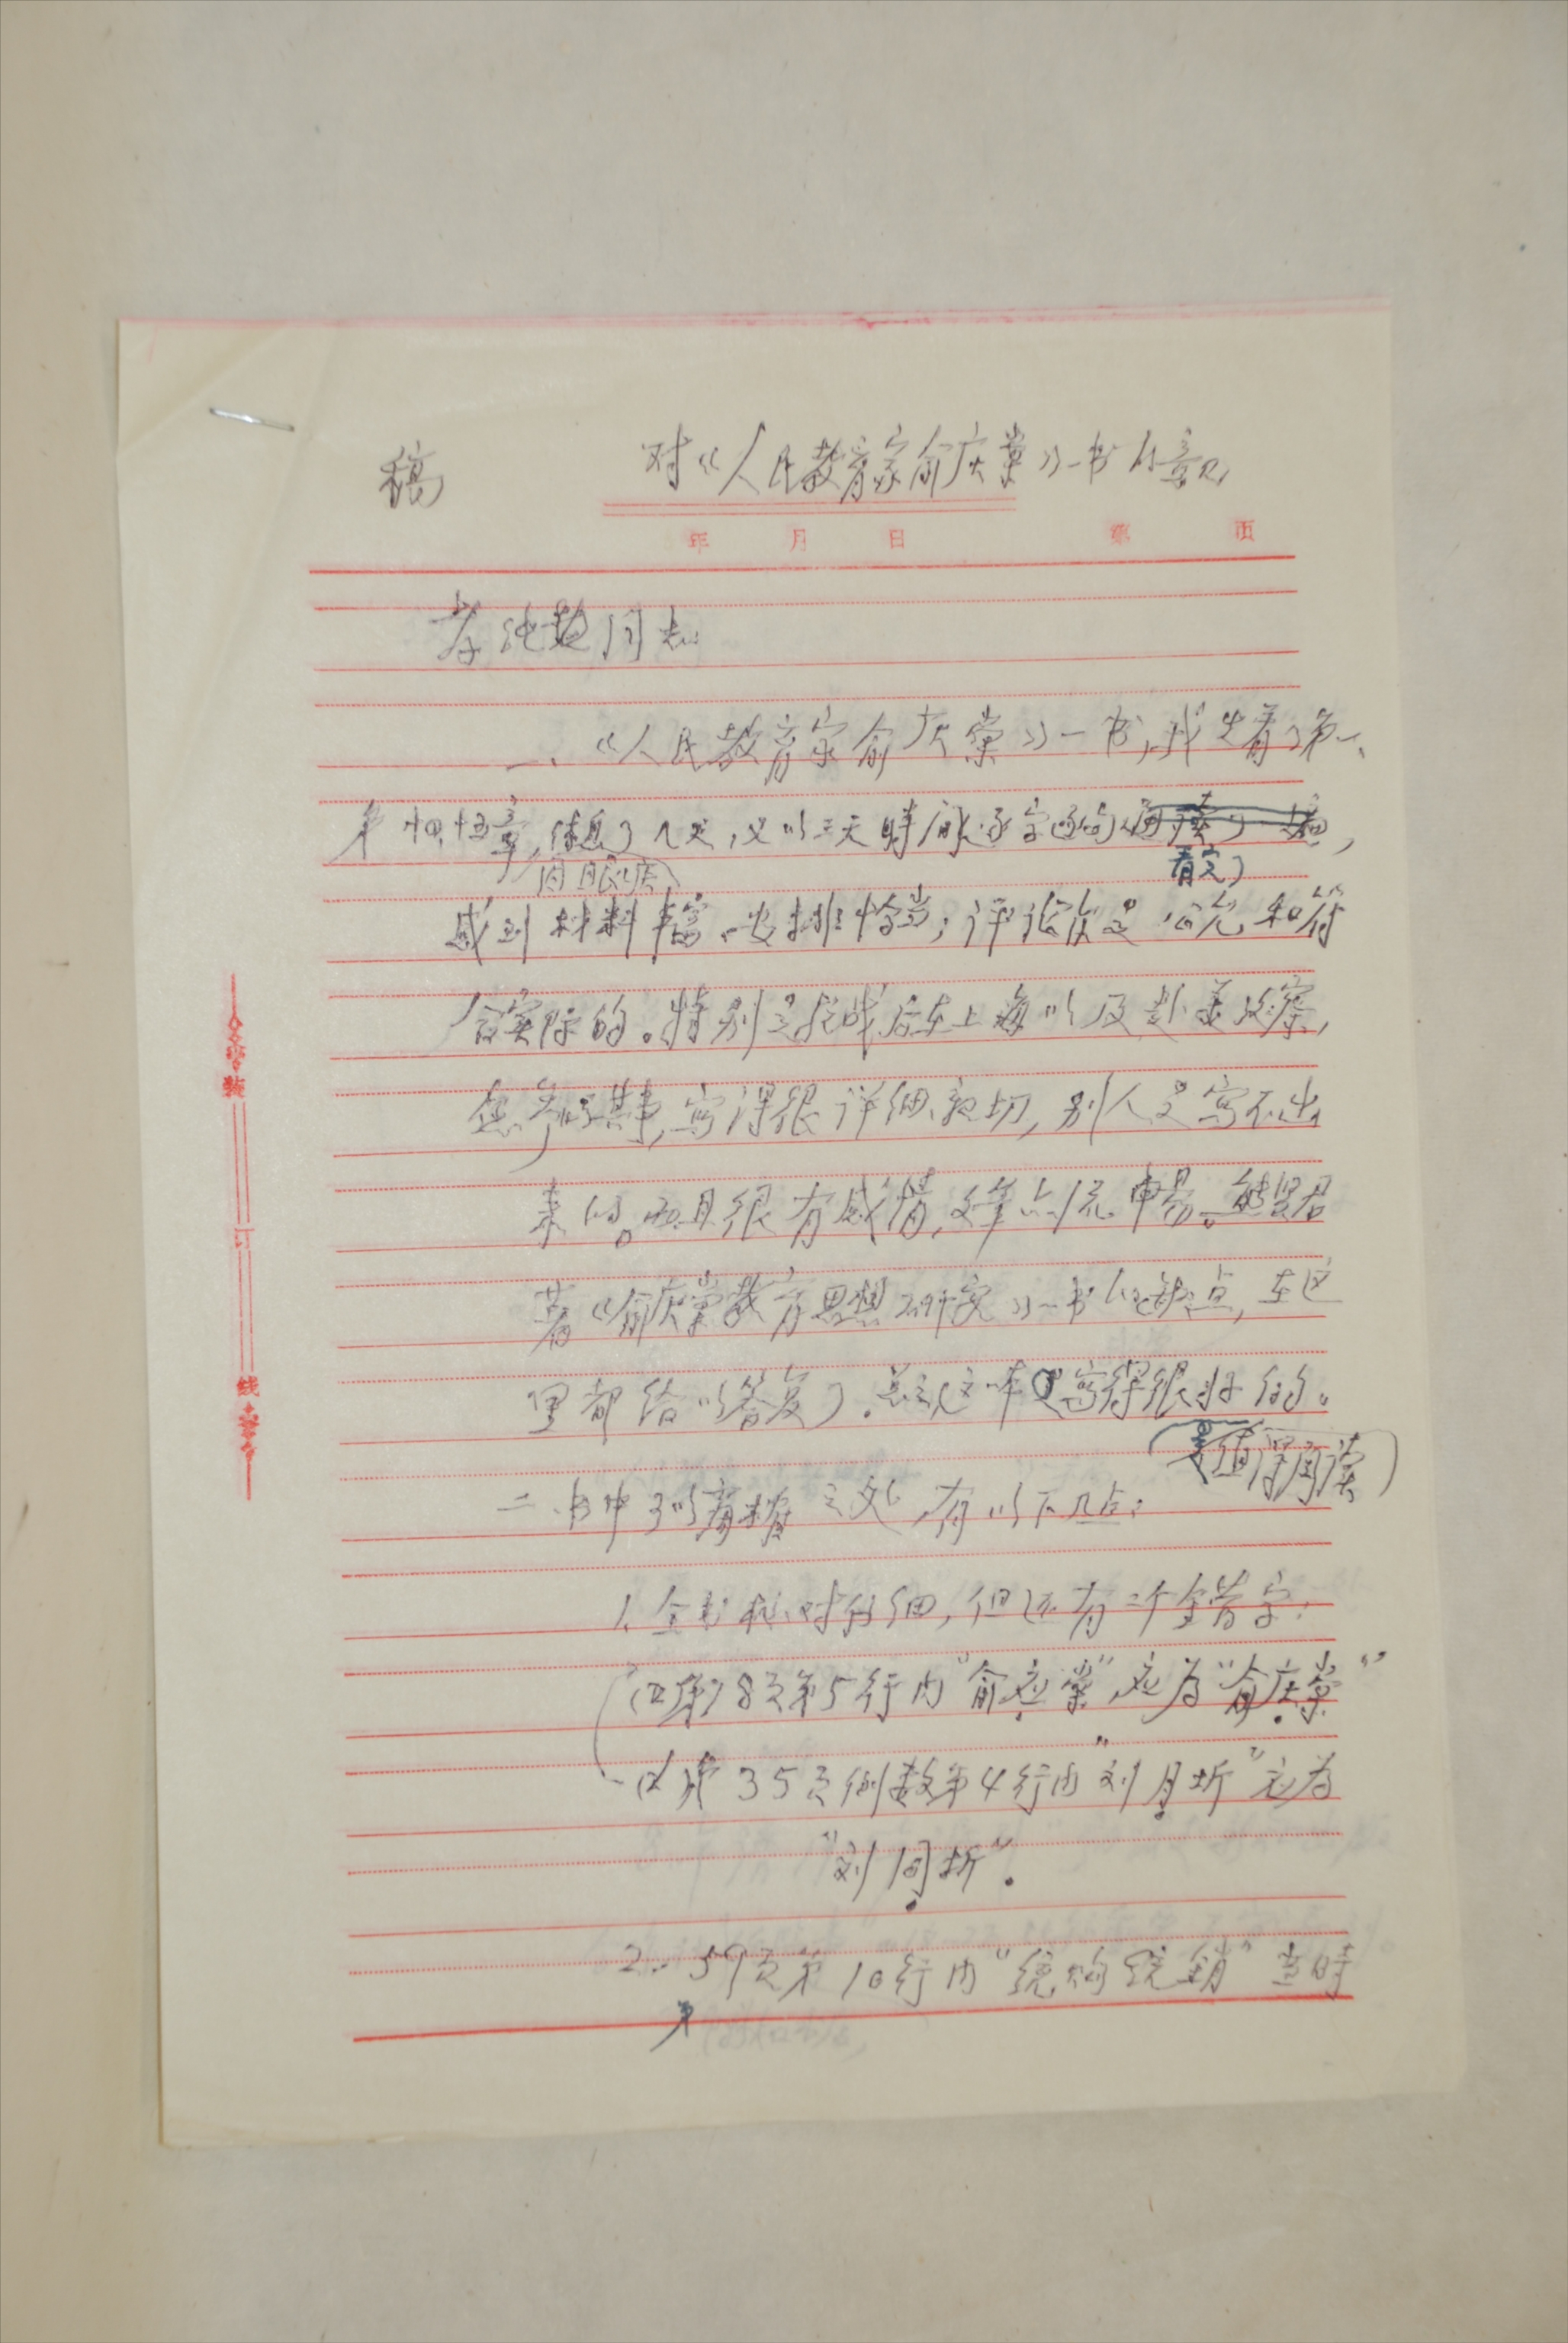 稿 对《人民教育家俞庆棠》一书的意见
年 月 日 第 页
同志:
一、《人民教育家俞庆棠》一书,我先看了第一、
第十四、十五章,休息了几天,又以三天时间逐字逐句通读了一遍,
看完了
(因眼疾)
感到材料丰富、安排恰当;评论是公允和符
合实际的。特别是抗战后在上海以及赴美考察,
您参与其事,写得很详细、亲切,别人是写不出
来的。而且很有感情,文笔亦流畅。熊贤君
著《俞庆棠教育思想研究》一书的缺点,在这
里都给以答复了。总之这本书是写得很好的。
(是值得阅读)
二、书中可以商榷之处,有以下几点:
1、全书校对仔细,但还有二个错字:
(1)第78页第5行内“俞应棠”,应为“俞庆棠”
(2)第35页倒数第4行内“刘月圻”应为
“刘同圻”。
2、第59页第10行内“统购统销”当时
装 订 线